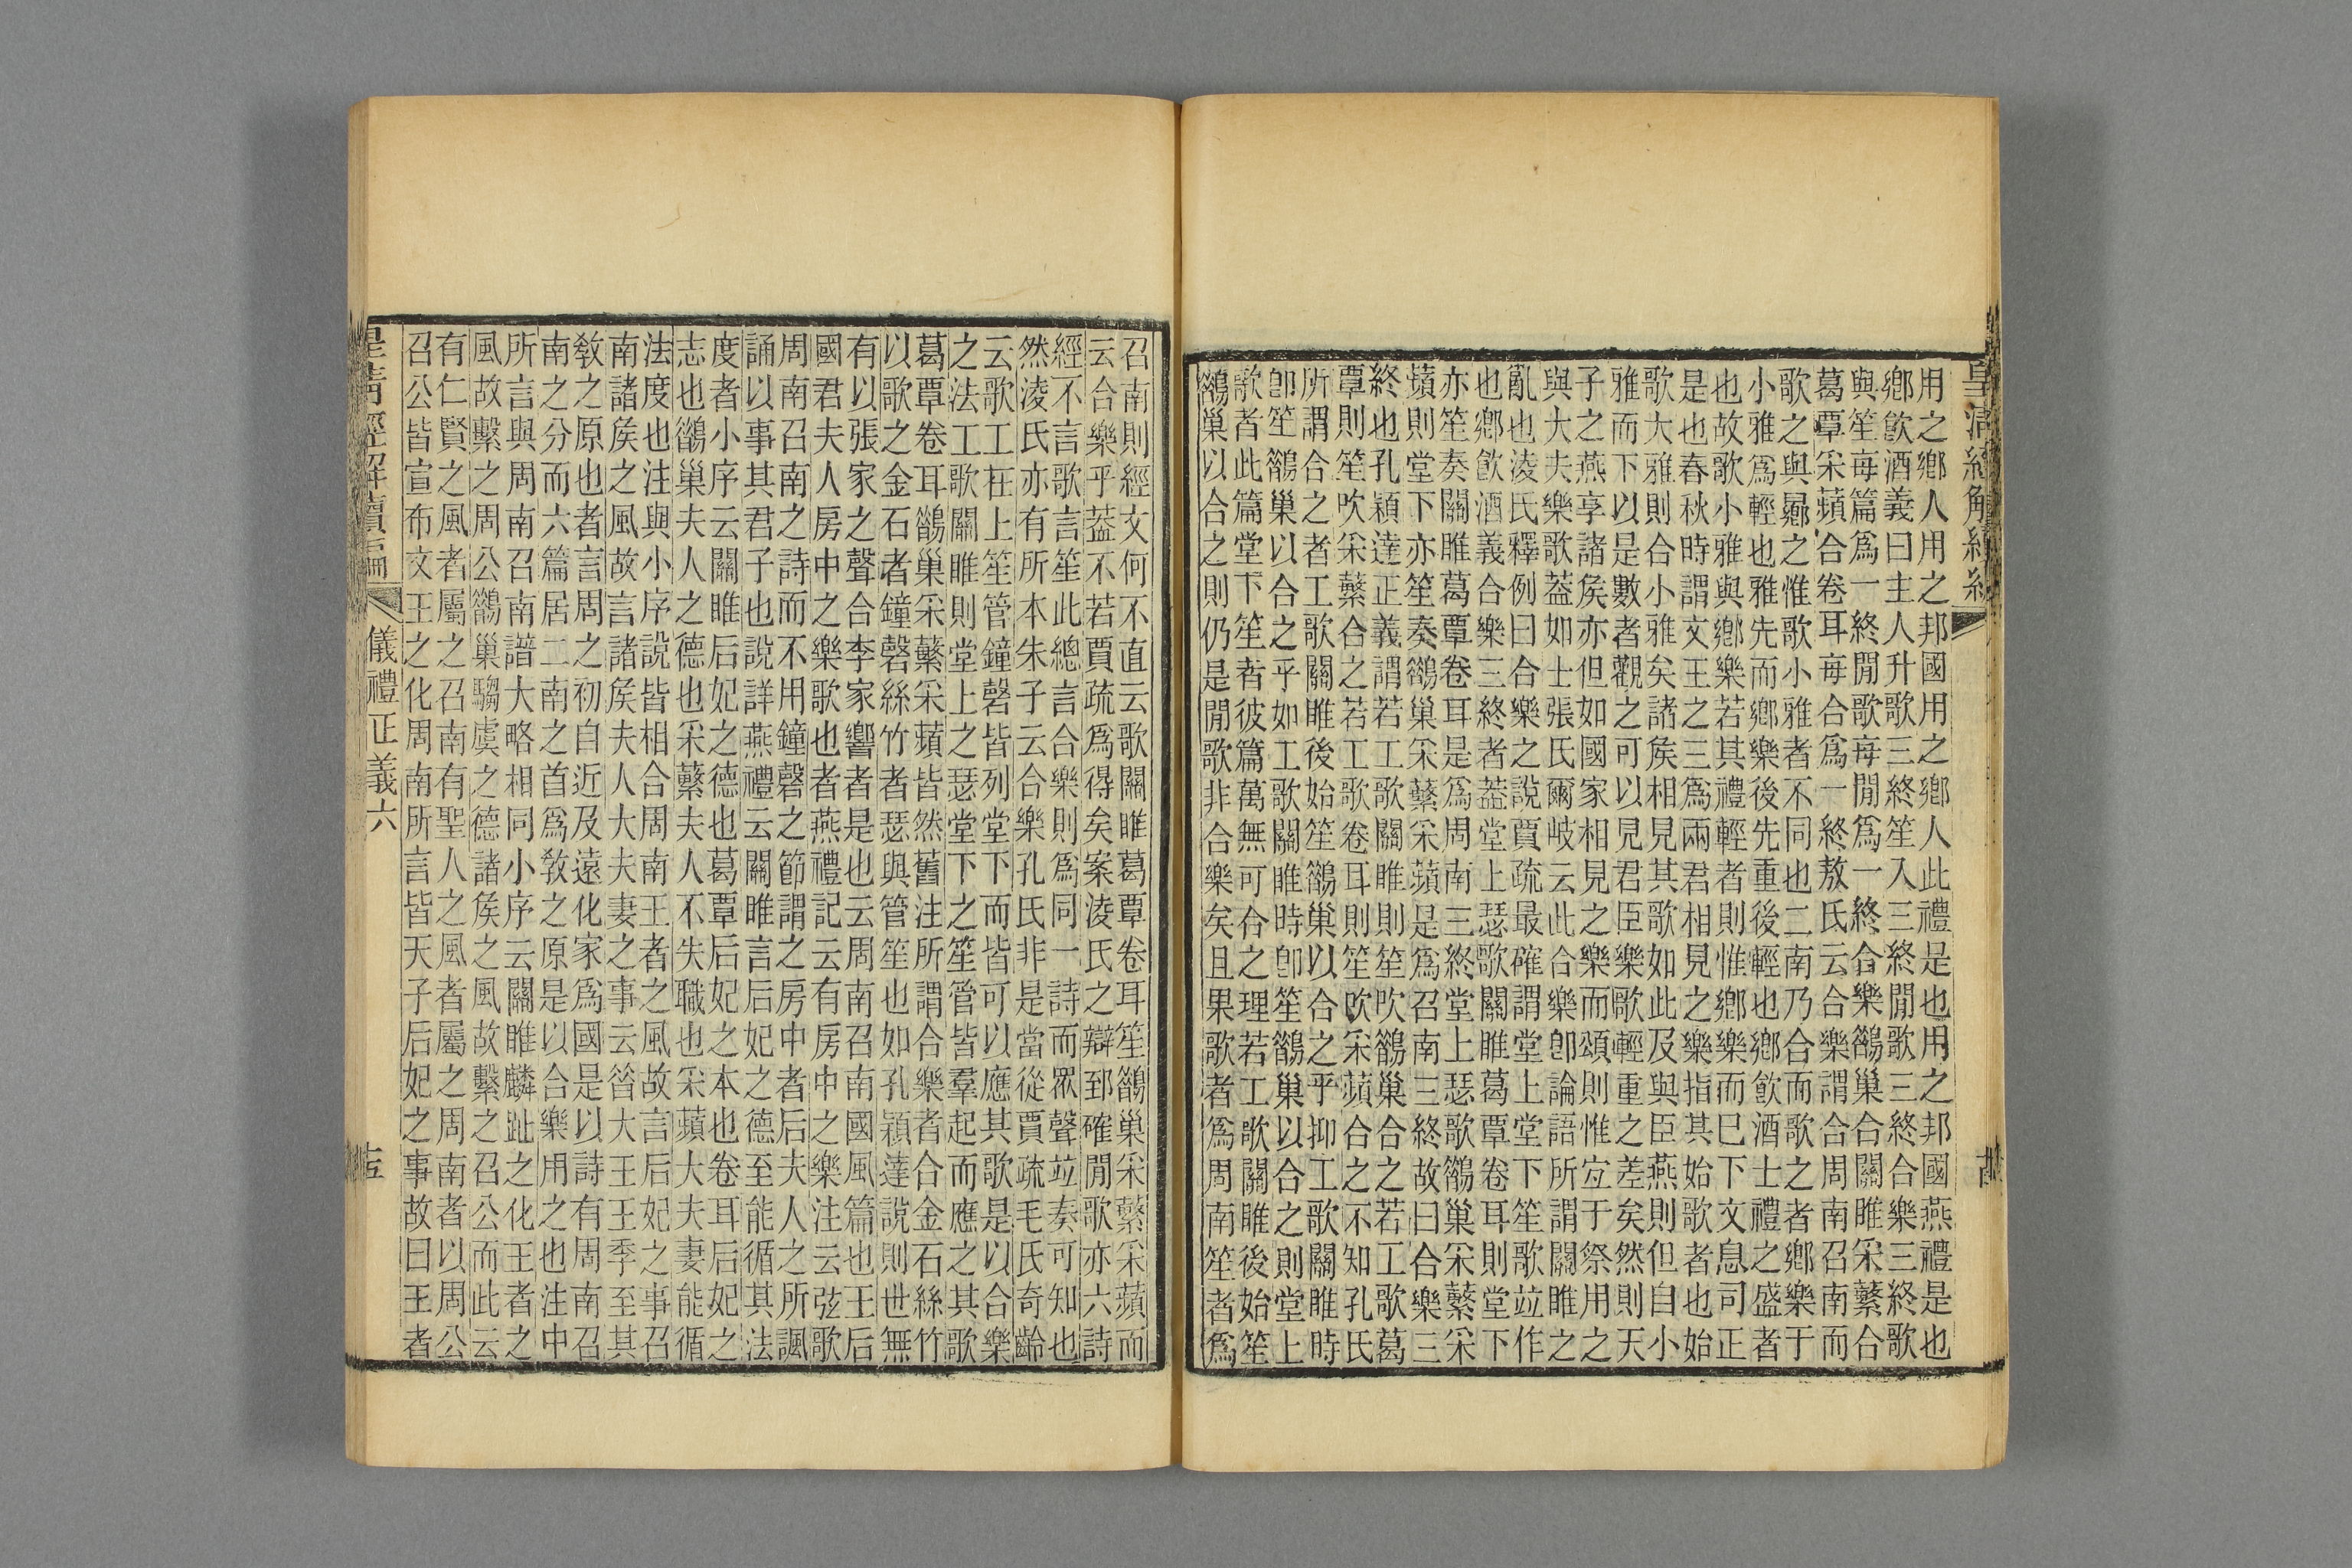 用之鄉人用之邦國用之鄉人此禮是也用之邦國燕禮是也
鄉飲酒義曰主人升歌三終笙入三終閒歌三終合樂三終歌
與笙每篇爲一終閒歌每閒爲一終合樂鵲巢合關雎采蘩合
葛覃采蘋合卷耳每合爲一終敖氏云合樂謂合周南召南而
歌之與鄉之惟歌小雅者不同也二南乃合而歌之者鄉樂于
小雅爲輕也雅先而鄉樂後先重後輕也鄉飲酒士禮之盛者
也故歌小雅與鄉樂若其禮輕者則惟鄉樂而已下文息司正
是也春秋時謂文王之三爲兩君相見之樂指其始歌者也始
歌大雅則合小雅矣諸矦相見其歌如此及與臣燕則但自小
雅而下以是數者觀之可以見君臣樂歌輕重之差矣然則天
子之燕享諸矦亦但如國家相見之樂而頌則惟宐于祭用之
與大夫樂歌葢如士張氏爾岐云此合樂卽論語所謂關雎之
亂也淩氏釋例曰合樂之說賈疏最確謂堂上堂下笙歌竝作
也鄉飲酒義合樂三終者葢堂上瑟歌關雎葛覃卷耳則堂下
亦笙奏關雎葛覃卷耳是爲周南三終堂上瑟歌鵲巢采蘩采
蘋則堂下亦笙奏鵲巢采蘩采蘋是爲召南三終故曰合樂三
終也孔穎達正義謂若工歌關雎則笙吹鵲巢合之若工歌葛
覃則笙吹采蘩合之若工歌卷耳則笙吹采蘋合之不知孔氏
所謂合之者工歌關雎後始笙鵲巢以合之乎抑工歌關雎時
卽笙鵲巢以合之乎如工歌關雎時卽笙鵲巢以合之則堂上
歌者此篇堂下笙者彼篇萬無可合之理若工歌關雎後始笙
鵲巢以合之則仍是閒歌非合樂矣且果歌者爲周南笙者爲
召南則經文何不直云歌關雎葛覃卷耳笙鵲巢采蘩采蘋而
云合樂乎葢不若賈疏爲得矣案淩氏之辯郅確閒歌亦六詩
經不言歌言笙此總言合樂則爲同一詩而眾聲竝奏可知也
然淩氏亦有所本朱子云合樂孔氏非是當從賈疏毛氏奇齡
云歌工在上笙管鐘磬皆列堂下而皆可以應其歌是以合樂
之法工歌關雎則堂上之瑟堂下之笙管皆羣起而應之其歌
葛覃卷耳鵲巢采蘩采蘋皆然舊注所謂合樂者合金石絲竹
以歌之金石者鐘磬絲竹者瑟與管笙也如孔穎達說則世無
有以張家之聲合李家響者是也云周南召南國風篇也王后
國君夫人房中之樂歌也者燕禮記云有房中之樂注云弦歌
周南召南之詩而不用鐘磬之節謂之房中者后夫人之所諷
誦以事其君子也說詳燕禮云關雎言后妃之德至能循其法
度者小序云關雎后妃之德也葛覃后妃之本也卷耳后妃之
志也鵲巢夫人之德也采蘩夫人不失職也采蘋大夫妻能循
法度也注與小序說皆相合周南王者之風故言后妃之事召
南諸矦之風故言諸矦夫人大夫妻之事云昝大王王季至其
敎之原也者言周之初自近及遠化家爲國是以詩有周南召
南之分而六篇居二南之首爲敎之原是以合樂用之也注中
所言與周南召南譜大略相同小序云關雎麟趾之化王者之
風故繫之周公鵲巢騶虞之德諸矦之風故繫之召公而此云
有仁賢之風者屬之召南有聖人之風者屬之周南者以周公
召公皆宣布文王之化周南所言皆天子后妃之事故曰王者
儀禮正義六